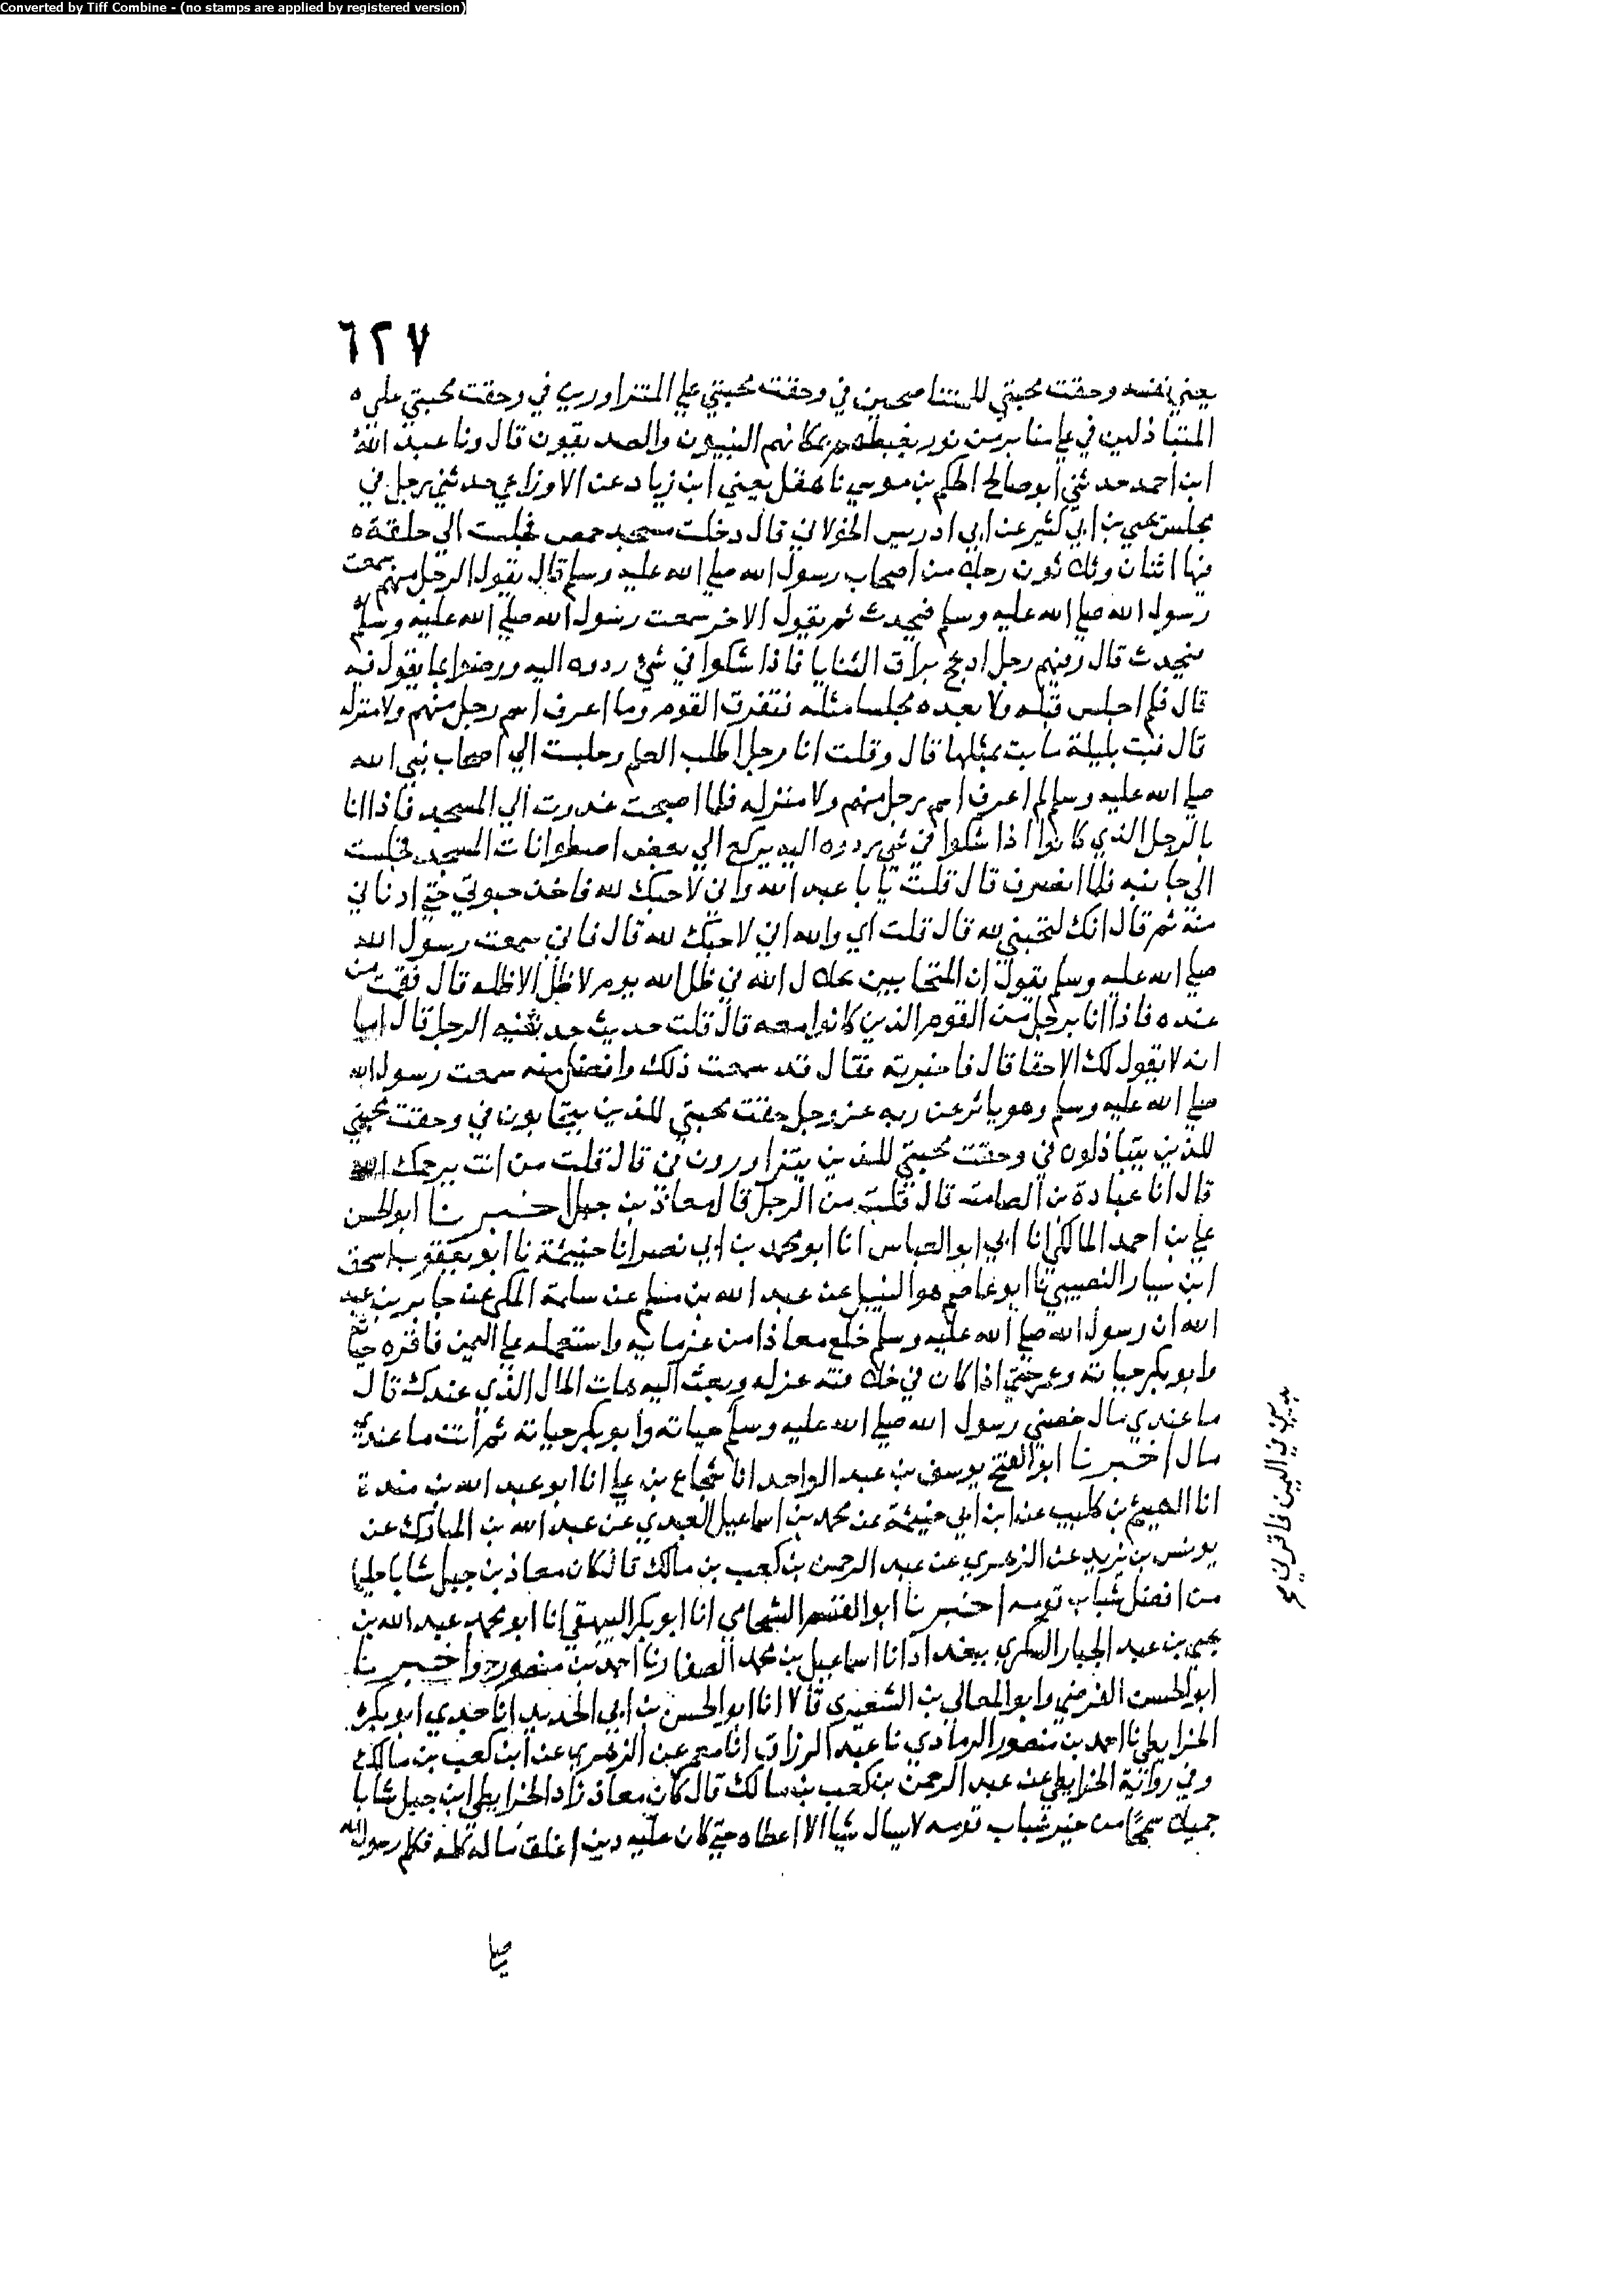 Converted by Tiff Combine - (no stamps are applied by registered version)
٦٢٧
يعني نفسه وحقت محبتي للمتناصحين في وحقت محبتي علي المتزاورين في وحقت محبتي علي ه
المتباذلين في علي منابر من نور يغبطهم بمكانهم النبيون والصديقون قال ونا عبد الله
ابن احمد حدثني ابو صالح الحكم بن موسي نا هقل يعني ابن زياد عن الاوزاعي حدثني رجل في
مجلس يحيي بن ابي كثير عن ابي ادريس الخولاني قال دخلت مسجد حمص فجلست الي حلقة ه
فيها اثنان وثلاثون رجلا من اصحاب رسول الله صلي الله عليه وسلم قال يقول الرجل منهم سمعت
رسول الله صلي الله عليه وسلم فيحدث ثم يقول الاخر سمعت رسول الله صلي الله عليه وسلم
فيحدث قال وفيهم رجل ادعج براق الثنايا فاذا شكوا في شئ ردوه اليه ورضوا بما يقول فيه
قال فلم اجلس قبله ولا بعده مجلسا مثله فتفرق القوم وما اعرف اسم رجل منهم ولا منزله
قال فبت بليلة ما بت بمثلها قال وقلت انا رجل اطلب العلم وجلست الي اصحاب نبي الله
صلي الله عليه وسلم لم اعرف اسم رجل منهم ولا منزله فلما اصبحت غدوت الي المسجد فاذا انا
بالرجل الذي كانوا اذا شكوا في شي ردوه اليه يركع الي بعض اصطوانات المسجد فجلست
الي جانبه فلما انصرف قال قلت يا با عبد الله واني لاحبك لله فاخذ حبوتي حتي ادناني
منه ثم قال انك لتحبني لله قال قلت اي والله اني لاحبك لله قال فاني سمعت رسول الله
صلي الله عليه وسلم يقول ان المتحابين بجلال الله في ظل الله يوم لا ظل الا ظله قال فقمت من
عنده فاذا انا برجل من القوم الذين كانوا معه قال قلت حديث حدثنيه الرجل قال اما
انه لا يقول لك الا حقا قال فاخبرته فقال قد سمعت ذلك وافضل منه سمعت رسول الله
صلي الله عليه وسلم وهو ياثر عن ربه عز وجل حقت محبتي للذين يتحابون في وحقت محبتي
للذين يتباذلون في وحقت محبتي للذين يتزاورون في قال قلت من انت يرحمك الله
قال انا عبادة بن الصامت قال قلت من الرجل قال معاذ بن جبل اخبرنا ابو الحسن
علي بن احمد المالكي انا ابي ابو العباس انا ابو محمد بن ابي نصر انا خيثمة نا ابو يعقوب اسحق
ابن سيار النصيبي نا ابو عاصم هو النبيل عن عبد الله بن مسلم عن سلمة المكي عن جابر بن عبد
الله ان رسول الله صلي الله عليه وسلم خلع معاذا من غرمايه واستعمله علي اليمن فاقره حياته
وابو بكر حياته وعمر حتي اذا كان في خلافته عزله وبعث اليه هات المال الذي عندك قال
ما عندي مال خصني رسول الله صلي الله عليه وسلم حياته وابو بكر حياته ثم انت ما عندي
مال اخبرنا ابو الفتح يوسف بن عبد الواحد انا شجاع بن علي انا ابو عبد الله بن مندة
انا الهيثم بن كليب عن ابن ابي خيثمة عن محمد بن اسماعيل العبدي عن عبد الله بن المبارك عن
يونس بن يزيد عن الزهري عن عبد الرحمن بن كعب بن مالك قال كان معاذ بن جبل شابا حليما
من افضل شباب قومه اخبرنا ابو القسم الشحامي انا ابو بكر البيهقي انا ابو محمد عبد الله بن
يحيي بن عبد الجبار السكري ببغداد انا اسماعيل بن محمد الصفار نا احمد بن منصور ح واخبرنا
ابو الحسن الفرضي وابو المعالي بن الشعيري قالا انا ابو الحسن بن ابي الحديد انا جدي ابو بكر
الخرايطي نا احمد بن منصور الرمادي نا عبد الرزاق انا معمر عن الزهري عن ابن كعب بن مالك
وفي رواية الخرايطي عن عبد الرحمن بن كعب بن مالك قال كان معاذ زاد الخرايطي ابن جبل شابا
جميلا سمحا من خير شباب قومه لا يسال شيا الا اعطاه حتي كان عليه دين اغلق ماله كله فكلم رسول الله
صلي